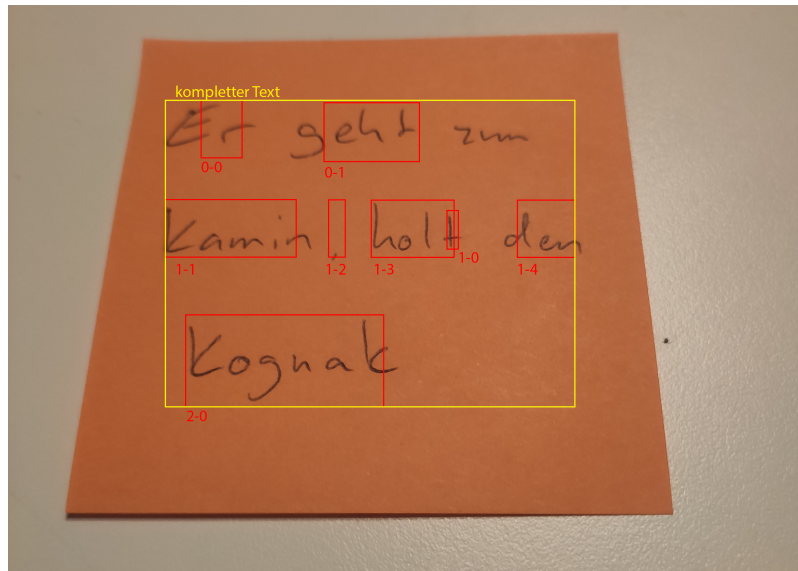 kompletter Text
Er geht zum
0-0 0-1
Kamin, holt den
1-1 1-2 1-3 1-0 1-4
Kognak
2-0